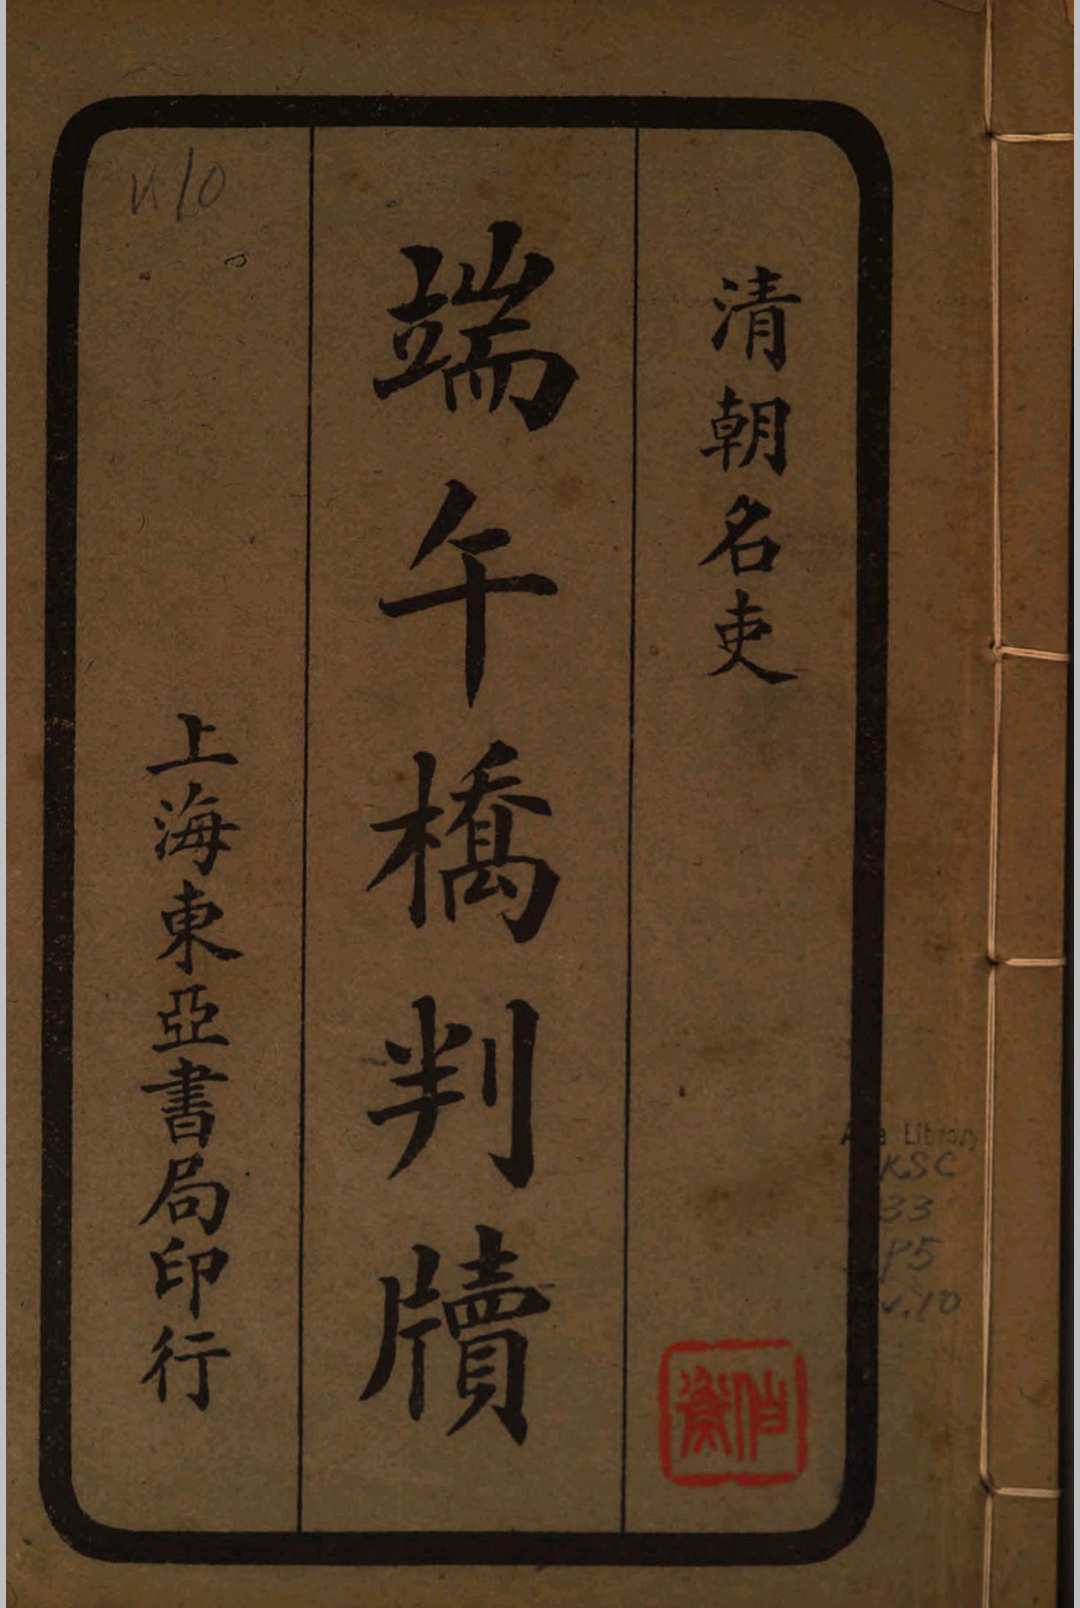 清朝名吏
端午橋判牘
上海東亞書局印行
Asia Library
KSC
33
P5
v.10